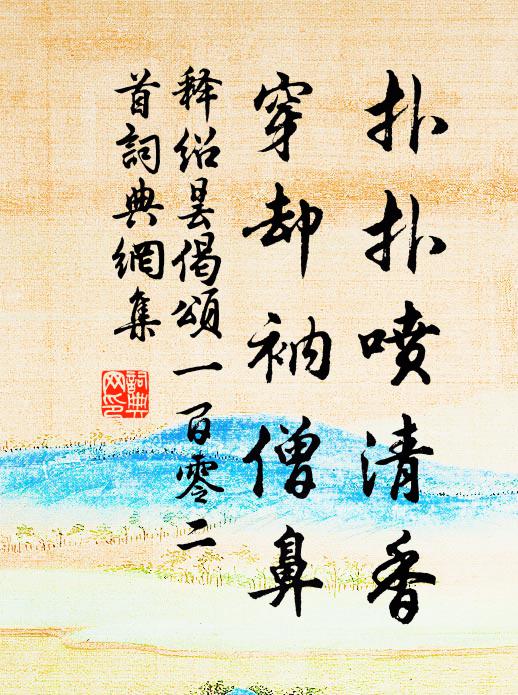 扑扑喷清香
穿却衲僧鼻
释绍昙偈颂一百零二
首詞典網集
詞典网印